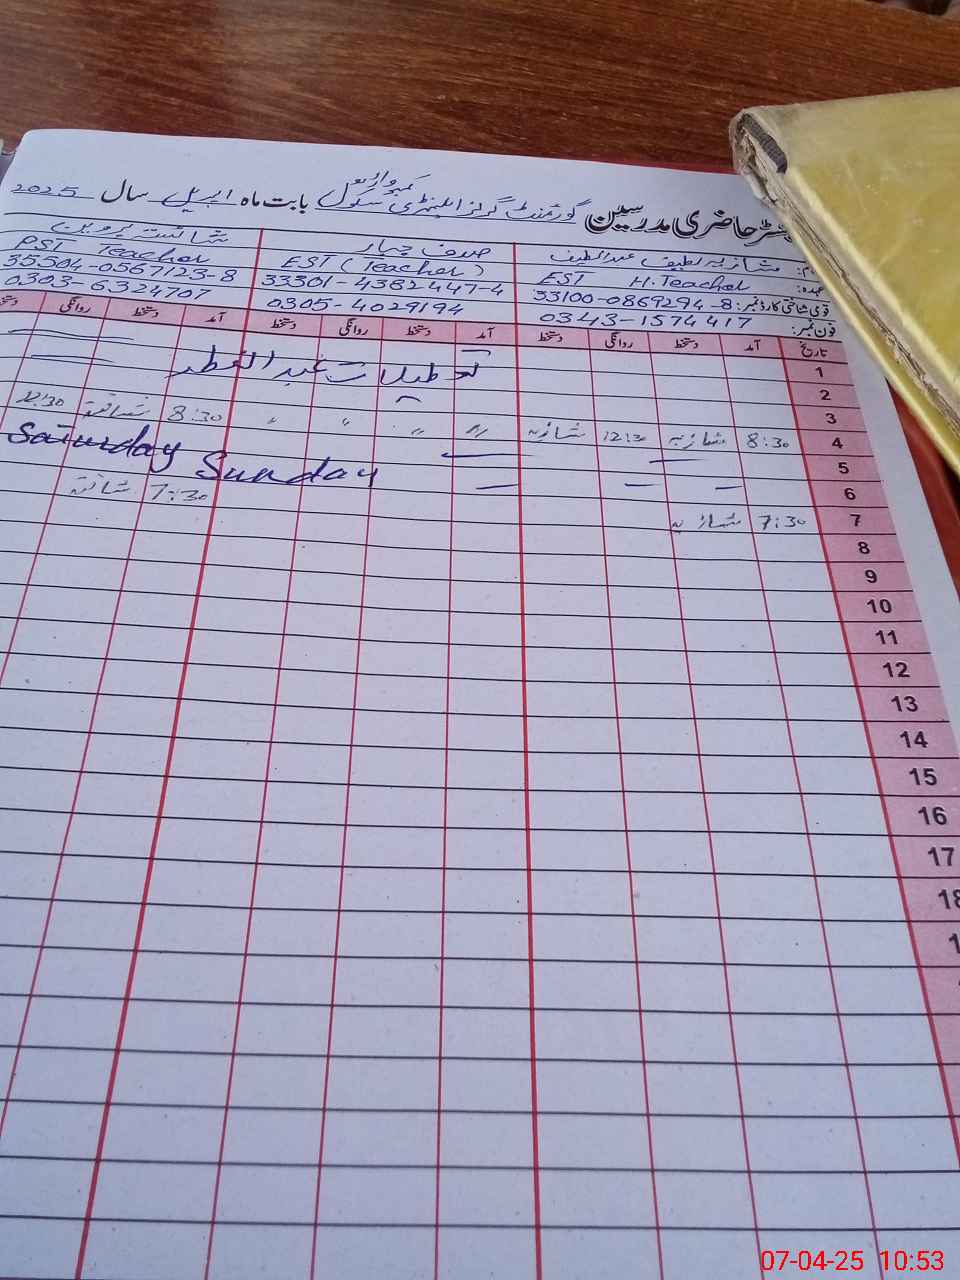 رجسٹر حاضری مدرسین گورنمنٹ گرلز ایلیمنٹری سکول بابت ماہ اپریل سال 2025
نام: شازیہ لطیف عبداللطیف صدف چہار شائستہ پروین
عہدہ: EST H.Teacher EST (Teacher) PST Teacher
قومی شناختی کارڈ نمبر: 33100-0869294-8 33301-4382447-4 35504-0567123-8
فون نمبر: 0343-1574417 0305-4029194 0303-6324707
تاریخ آمد دستخط روانگی دستخط آمد دستخط روانگی دستخط آمد دستخط روانگی دستخط
1
تعطیلات عید الفطر
2
3
4 8:30 شازیہ 12:30 شازیہ 〃 〃 〃 〃 8:30 شائستہ 12:30
5 Saturday
6 Sunday
7 7:30 شازیہ 7:30 شائستہ
8
9
10
11
12
13
14
15
16
17
18
07-04-25 10:53